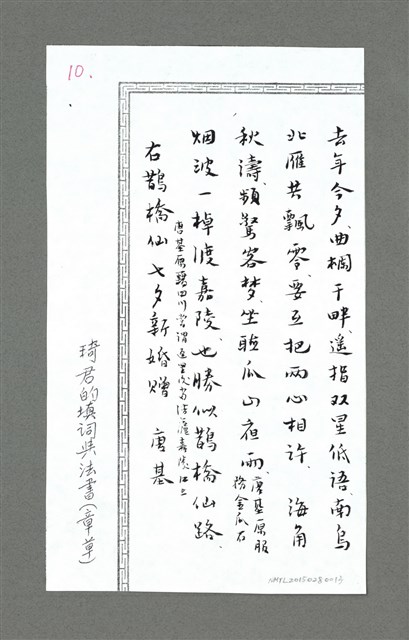 10.
去年今夕、曲欄干畔、遙指双星低語、南烏
北雁共飄零、要互把兩心相許、海角
秋濤、頻驚客梦、坐聽瓜山夜雨、唐基原服務金瓜石
烟波一棹渡嘉陵、也勝似鵲橋仙路、
唐基原籍四川常謂返里後当偕遊嘉陵江上
右鵲橋仙七夕新婚贈 唐基
琦君的填詞與法書(章草)
NMTL20150280013